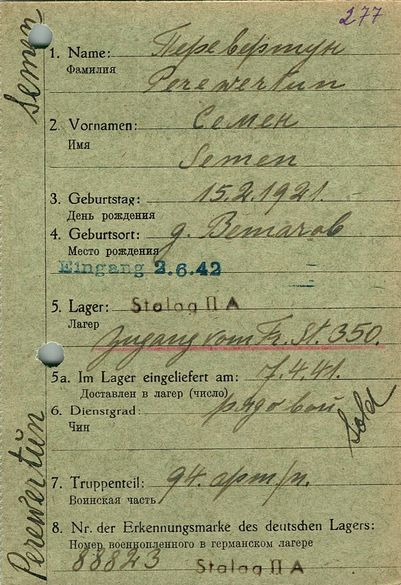 277
Semen
1. Name: Перевертун
Фамилия
Perewertun
2. Vornamen: Семен
Имя
Semen
3. Geburtstag: 15.2.1921.
День рождения
4. Geburtsort: д.
Место рождения
Eingang 2.6.42
5. Lager: Stalag II A
Лагер
Zugang vom Fr. St. 350.
5a. Im Lager eingeliefert am: 7.4.41.
Доставлен в лагер (число)
6. Dienstgrad: рядовой Sold
Чин
7. Truppenteil: 94. арт/п.
Воинская часть
8. Nr. der Erkennungsmarke des deutschen Lagers:
Номер военнопленного в германском лагере
88823 Stalag II A
Perewertun